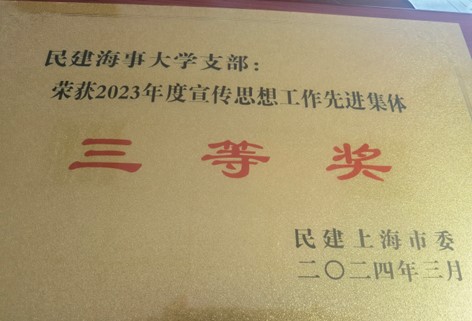 民建海事大学支部：
荣获2023年度宣传思想工作先进集体
三等奖
民建上海市委
二〇二四年三月